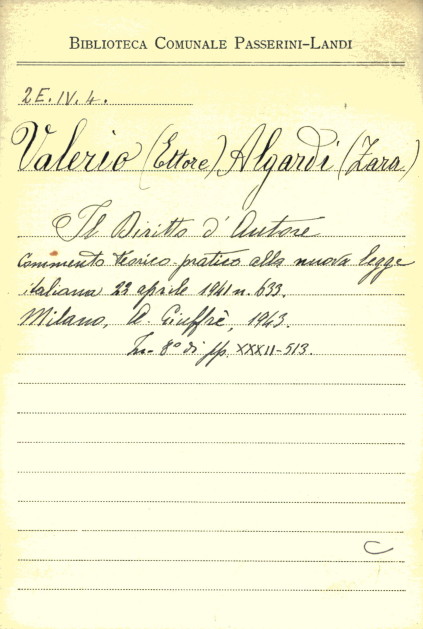 BIBLIOTECA COMUNALE PASSERINI-LANDI
2E.IV.4.
Valerio (Ettore) Algardi (Zara)
Il Diritto d'Autore
Commento teorico-pratico alla nuova legge
italiana 22 aprile 1941 n. 633.
Milano, A. Giuffrè, 1943.
In-8º di pp. XXXII-513.
C